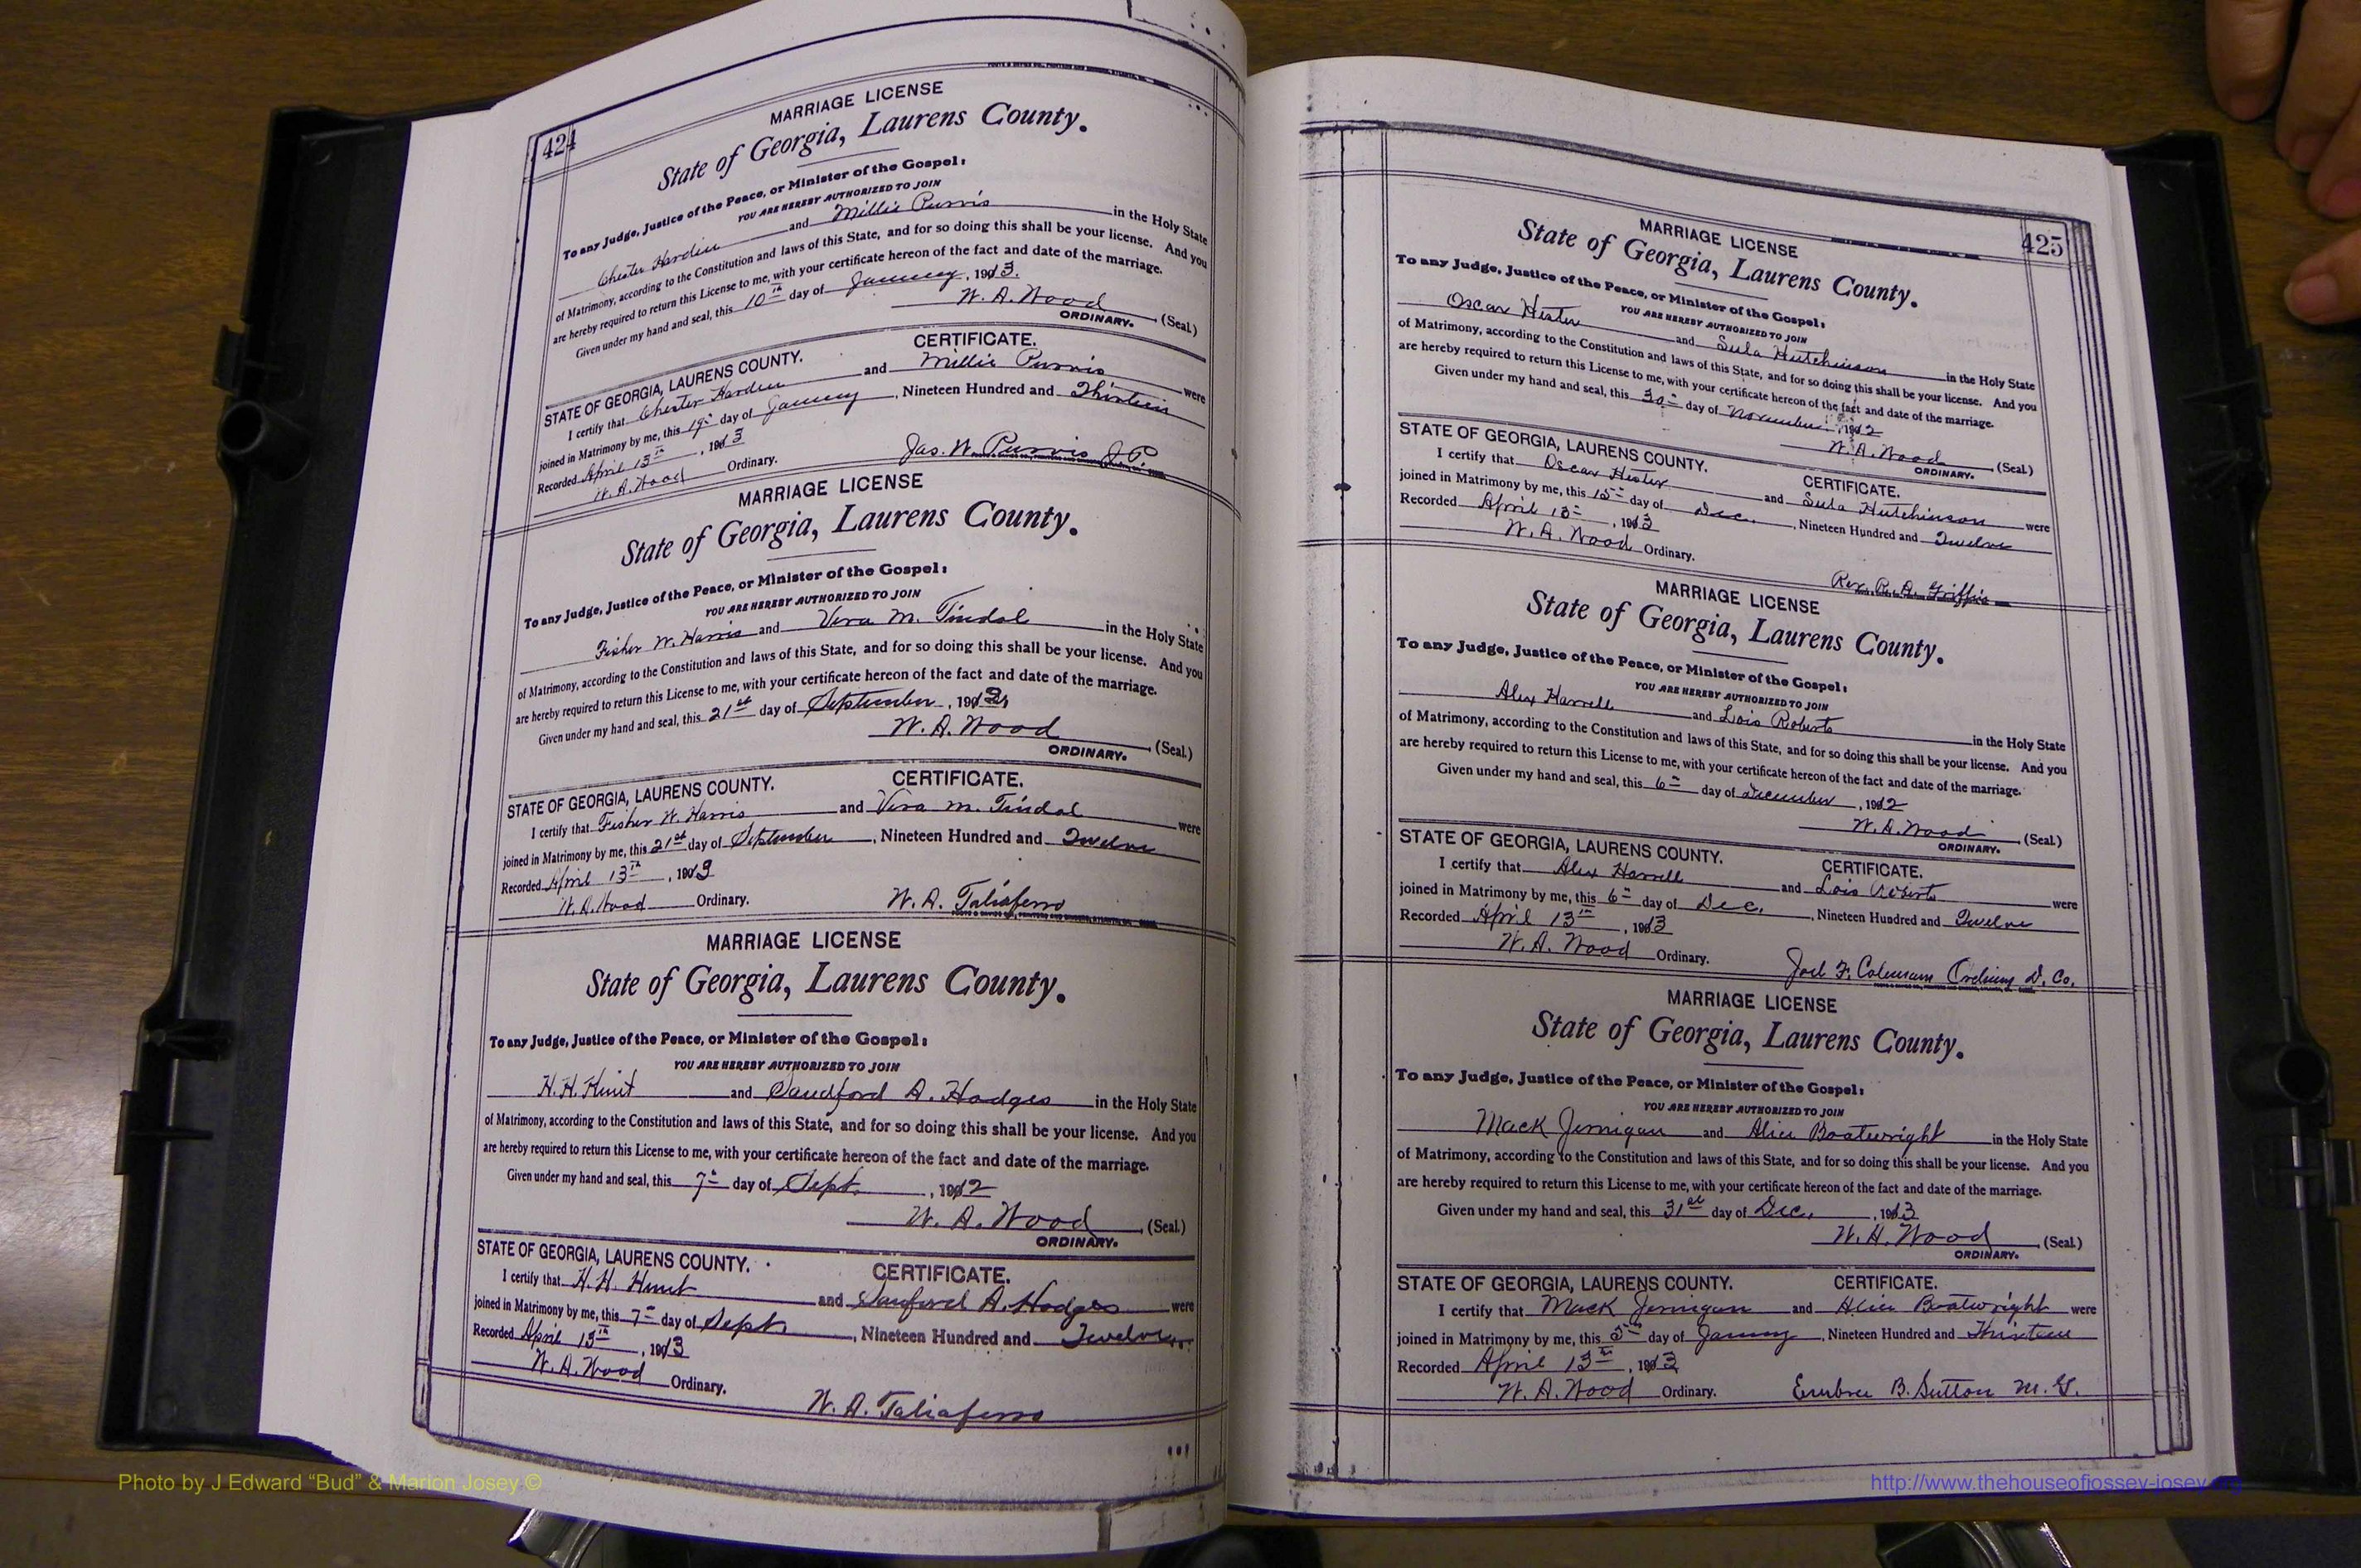 424
MARRIAGE LICENSE
State of Georgia, Laurens County.
To any Judge, Justice of the Peace, or Minister of the Gospel:
YOU ARE HEREBY AUTHORIZED TO JOIN
Chester Hardin and Millie Purvis in the Holy State
of Matrimony, according to the Constitution and laws of this State, and for so doing this shall be your license. And you
are hereby required to return this License to me, with your certificate hereon of the fact and date of the marriage.
Given under my hand and seal, this 10th day of January, 1913.
W. A. Wood (Seal.)
ORDINARY.
STATE OF GEORGIA, LAURENS COUNTY. CERTIFICATE.
I certify that Chester Hardin and Millie Purvis were
joined in Matrimony by me, this 19 day of January, Nineteen Hundred and Thirteen
Recorded April 13th, 1913
W. A. Wood Ordinary. Jas. W. Purvis J P
MARRIAGE LICENSE
State of Georgia, Laurens County.
To any Judge, Justice of the Peace, or Minister of the Gospel:
YOU ARE HEREBY AUTHORIZED TO JOIN
Fisher W. Harris and Vera M. Tindol in the Holy State
of Matrimony, according to the Constitution and laws of this State, and for so doing this shall be your license. And you
are hereby required to return this License to me, with your certificate hereon of the fact and date of the marriage.
Given under my hand and seal, this 21st day of September, 1912
W. A. Wood (Seal.)
ORDINARY.
STATE OF GEORGIA, LAURENS COUNTY. CERTIFICATE.
I certify that Fisher W. Harris and Vera M. Tindol were
joined in Matrimony by me, this 21st day of September, Nineteen Hundred and Twelve
Recorded April 13th, 1913
W. A. Wood Ordinary. W. A. Taliaferro
MARRIAGE LICENSE
State of Georgia, Laurens County.
To any Judge, Justice of the Peace, or Minister of the Gospel:
YOU ARE HEREBY AUTHORIZED TO JOIN
H. H. Hunt and Sandford A. Hodges in the Holy State
of Matrimony, according to the Constitution and laws of this State, and for so doing this shall be your license. And you
are hereby required to return this License to me, with your certificate hereon of the fact and date of the marriage.
Given under my hand and seal, this 7th day of Sept., 1912
W. A. Wood (Seal.)
ORDINARY.
STATE OF GEORGIA, LAURENS COUNTY. CERTIFICATE.
I certify that H. H. Hunt and Sanford A. Hodges were
joined in Matrimony by me, this 7th day of Sept, Nineteen Hundred and Twelve
Recorded April 13th, 1913
W. A. Wood Ordinary.
W. A. Taliaferro
425
MARRIAGE LICENSE
State of Georgia, Laurens County.
To any Judge, Justice of the Peace, or Minister of the Gospel:
YOU ARE HEREBY AUTHORIZED TO JOIN
Oscar Hester and Sula Hutchinson in the Holy State
of Matrimony, according to the Constitution and laws of this State, and for so doing this shall be your license. And you
are hereby required to return this License to me, with your certificate hereon of the fact and date of the marriage.
Given under my hand and seal, this 30 day of November, 1912
W. A. Wood (Seal.)
ORDINARY.
STATE OF GEORGIA, LAURENS COUNTY. CERTIFICATE.
I certify that Oscar Hester and Sula Hutchinson were
joined in Matrimony by me, this 15 day of Dec., Nineteen Hundred and Twelve
Recorded April 13, 1913
W. A. Wood Ordinary.
R. A. Griffin
MARRIAGE LICENSE
State of Georgia, Laurens County.
To any Judge, Justice of the Peace, or Minister of the Gospel:
YOU ARE HEREBY AUTHORIZED TO JOIN
Alex Harrell and Lois Roberts in the Holy State
of Matrimony, according to the Constitution and laws of this State, and for so doing this shall be your license. And you
are hereby required to return this License to me, with your certificate hereon of the fact and date of the marriage.
Given under my hand and seal, this 6 day of December, 1912
W. A. Wood (Seal.)
ORDINARY.
STATE OF GEORGIA, LAURENS COUNTY. CERTIFICATE.
I certify that Alex Harrell and Lois Roberts were
joined in Matrimony by me, this 6 day of Dec., Nineteen Hundred and Twelve
Recorded April 13th, 1913
W. A. Wood Ordinary. Joel F. Coleman Ordinary D. Co.
MARRIAGE LICENSE
State of Georgia, Laurens County.
To any Judge, Justice of the Peace, or Minister of the Gospel:
YOU ARE HEREBY AUTHORIZED TO JOIN
Mack Jernigan and Alice Boatwright in the Holy State
of Matrimony, according to the Constitution and laws of this State, and for so doing this shall be your license. And you
are hereby required to return this License to me, with your certificate hereon of the fact and date of the marriage.
Given under my hand and seal, this 31st day of Dec., 1913
W. A. Wood (Seal.)
ORDINARY.
STATE OF GEORGIA, LAURENS COUNTY. CERTIFICATE.
I certify that Mack Jernigan and Alice Boatwright were
joined in Matrimony by me, this 5th day of January, Nineteen Hundred and Thirteen
Recorded April 13th, 1913
W. A. Wood Ordinary. Embree B. Sutton M. G.
Photo by J Edward “Bud” & Marion Josey ©
http://www.thehouseofjossey-josey.org